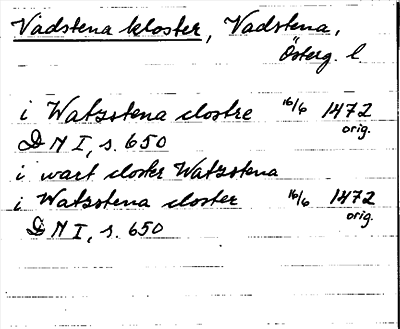 Vadstena kloster, Vadstena,
Österg. l
i Watzstena clostre 16/6 1472
orig.
DN I, s. 650
i wart closter Watzstena
i Watzstena closter 16/6 1472
orig.
DN I, s. 650